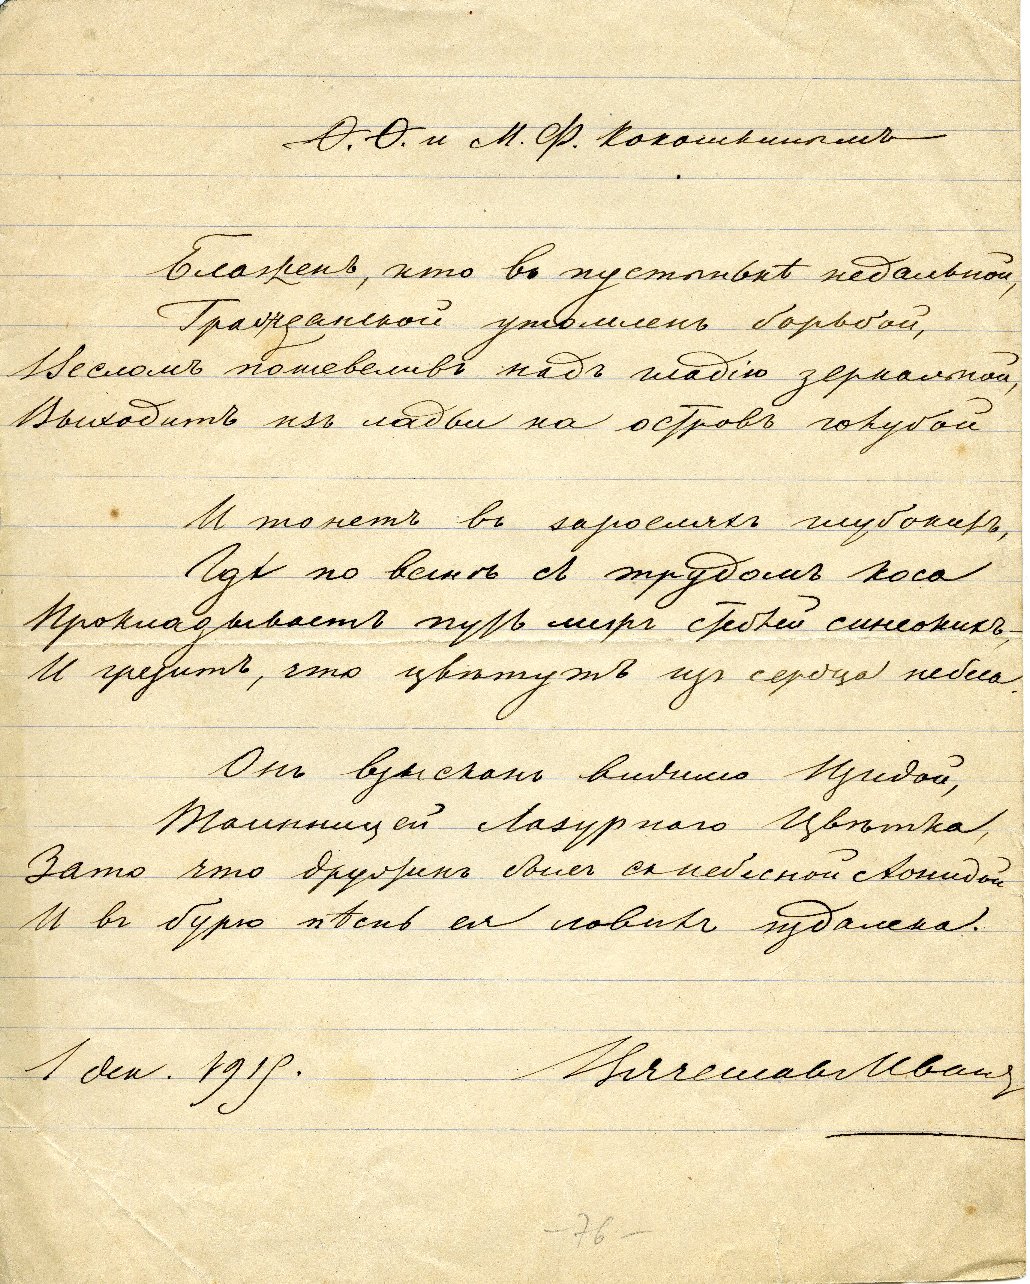 Ѳ. Ѳ. и М. Ф. Кокошкинымъ
Блаженъ, кто въ пустынькѣ недальной,
Гражданской утомленъ борьбой,
Весломъ пошевеливъ надъ гладію зеркальной,
Выходитъ изъ ладьи на островъ голубой
И тонетъ въ заросляхъ глубокихъ,
Гдѣ по веснѣ съ трудомъ коса
Прокладываетъ путь межъ стеблей синеокихъ,
И грезитъ, что цвѣтутъ изъ сердца небеса.
Онъ взысканъ видимо Изидой,
Таинницей Лазурнаго Цвѣтка,
Зато что друженъ былъ съ небесной Аонидой
И въ бурю пѣснь ея ловилъ издалека.
1 дек. 1915.
Вячеславъ Иванов
— 76 —